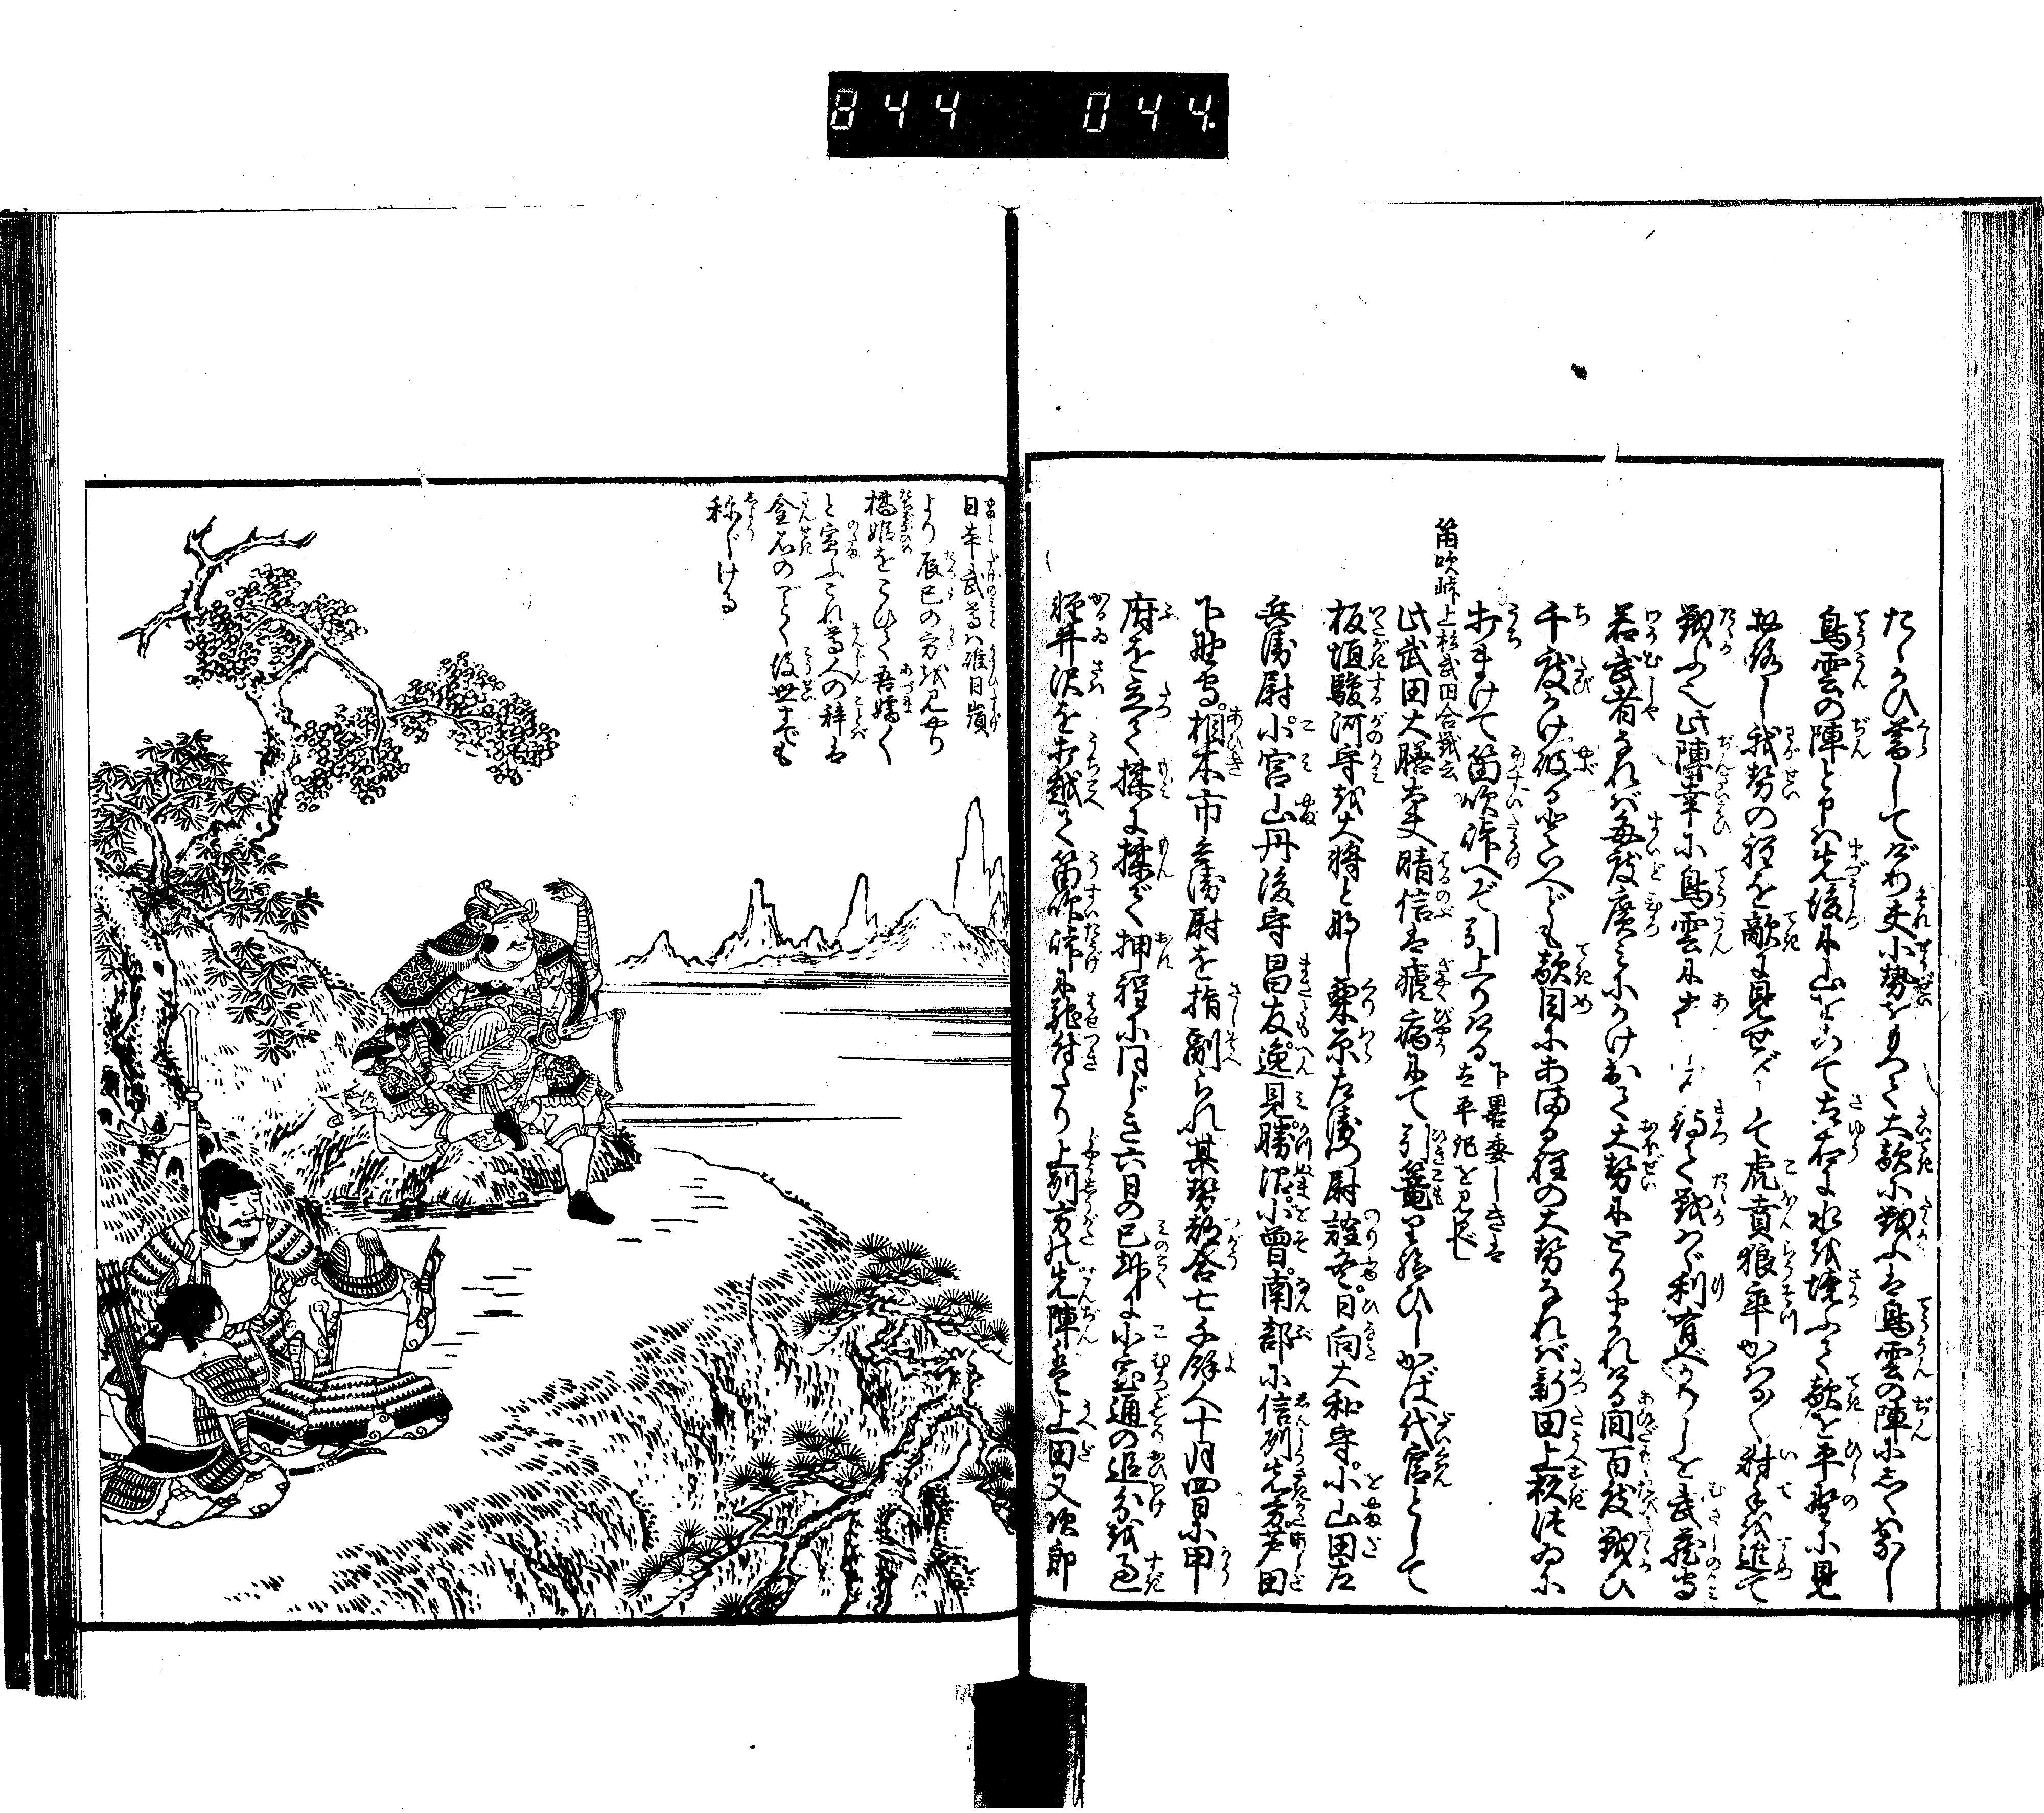 844 044.
たゝかひ暮してげり夫小勢をもつて大敵に戦ふは鳥雲の陣にしくはなし
鳥雲の陣と申は先後に山をあて左右に水を堺ふて敵を平野に見
おろし我勢の程を敵に見せずして虎賁狼卒かはる〱射手を進て
戦ふ也此陣幸に鳥雲に 待て戦はゞ利有べかりしを武蔵守
若武者なれば毎度廣みにかけ出て大勢にとりまかれける間百度戦ひ
千度かけ破るといへども敵目にあまる程の大勢なれば新田上杉つゐに
打まけて笛吹峠へぞ引上りける
下畧委しきは
太平記を見るべし
笛吹峠上杉武田合戦云
此武田大膳大夫晴信は瘧病にて引籠り給ひしかば代官として
板垣駿河守を大将と那し栗原左衛門尉詮冬。日向大和守。小山田左
兵衛尉。小宮山丹後守昌友。逸見。勝沼。小曽。南部に信州先方芦田
下野守。相木市兵衛尉を指副られ其勢都合七千餘人十月四日に甲
府を立て揉に揉で押程に同じき六日の巳刻に小室通の追分を過
軽井沢を打越て笛吹峠に馳付たり上州方の先陣は上田又次郎
日本武尊ハ碓日嶺
より辰巳の方を見やり
橘姫をこひて吾嬬〱
と宣ふこれ尊人の辞は
金石のごとく後世までも
称じける